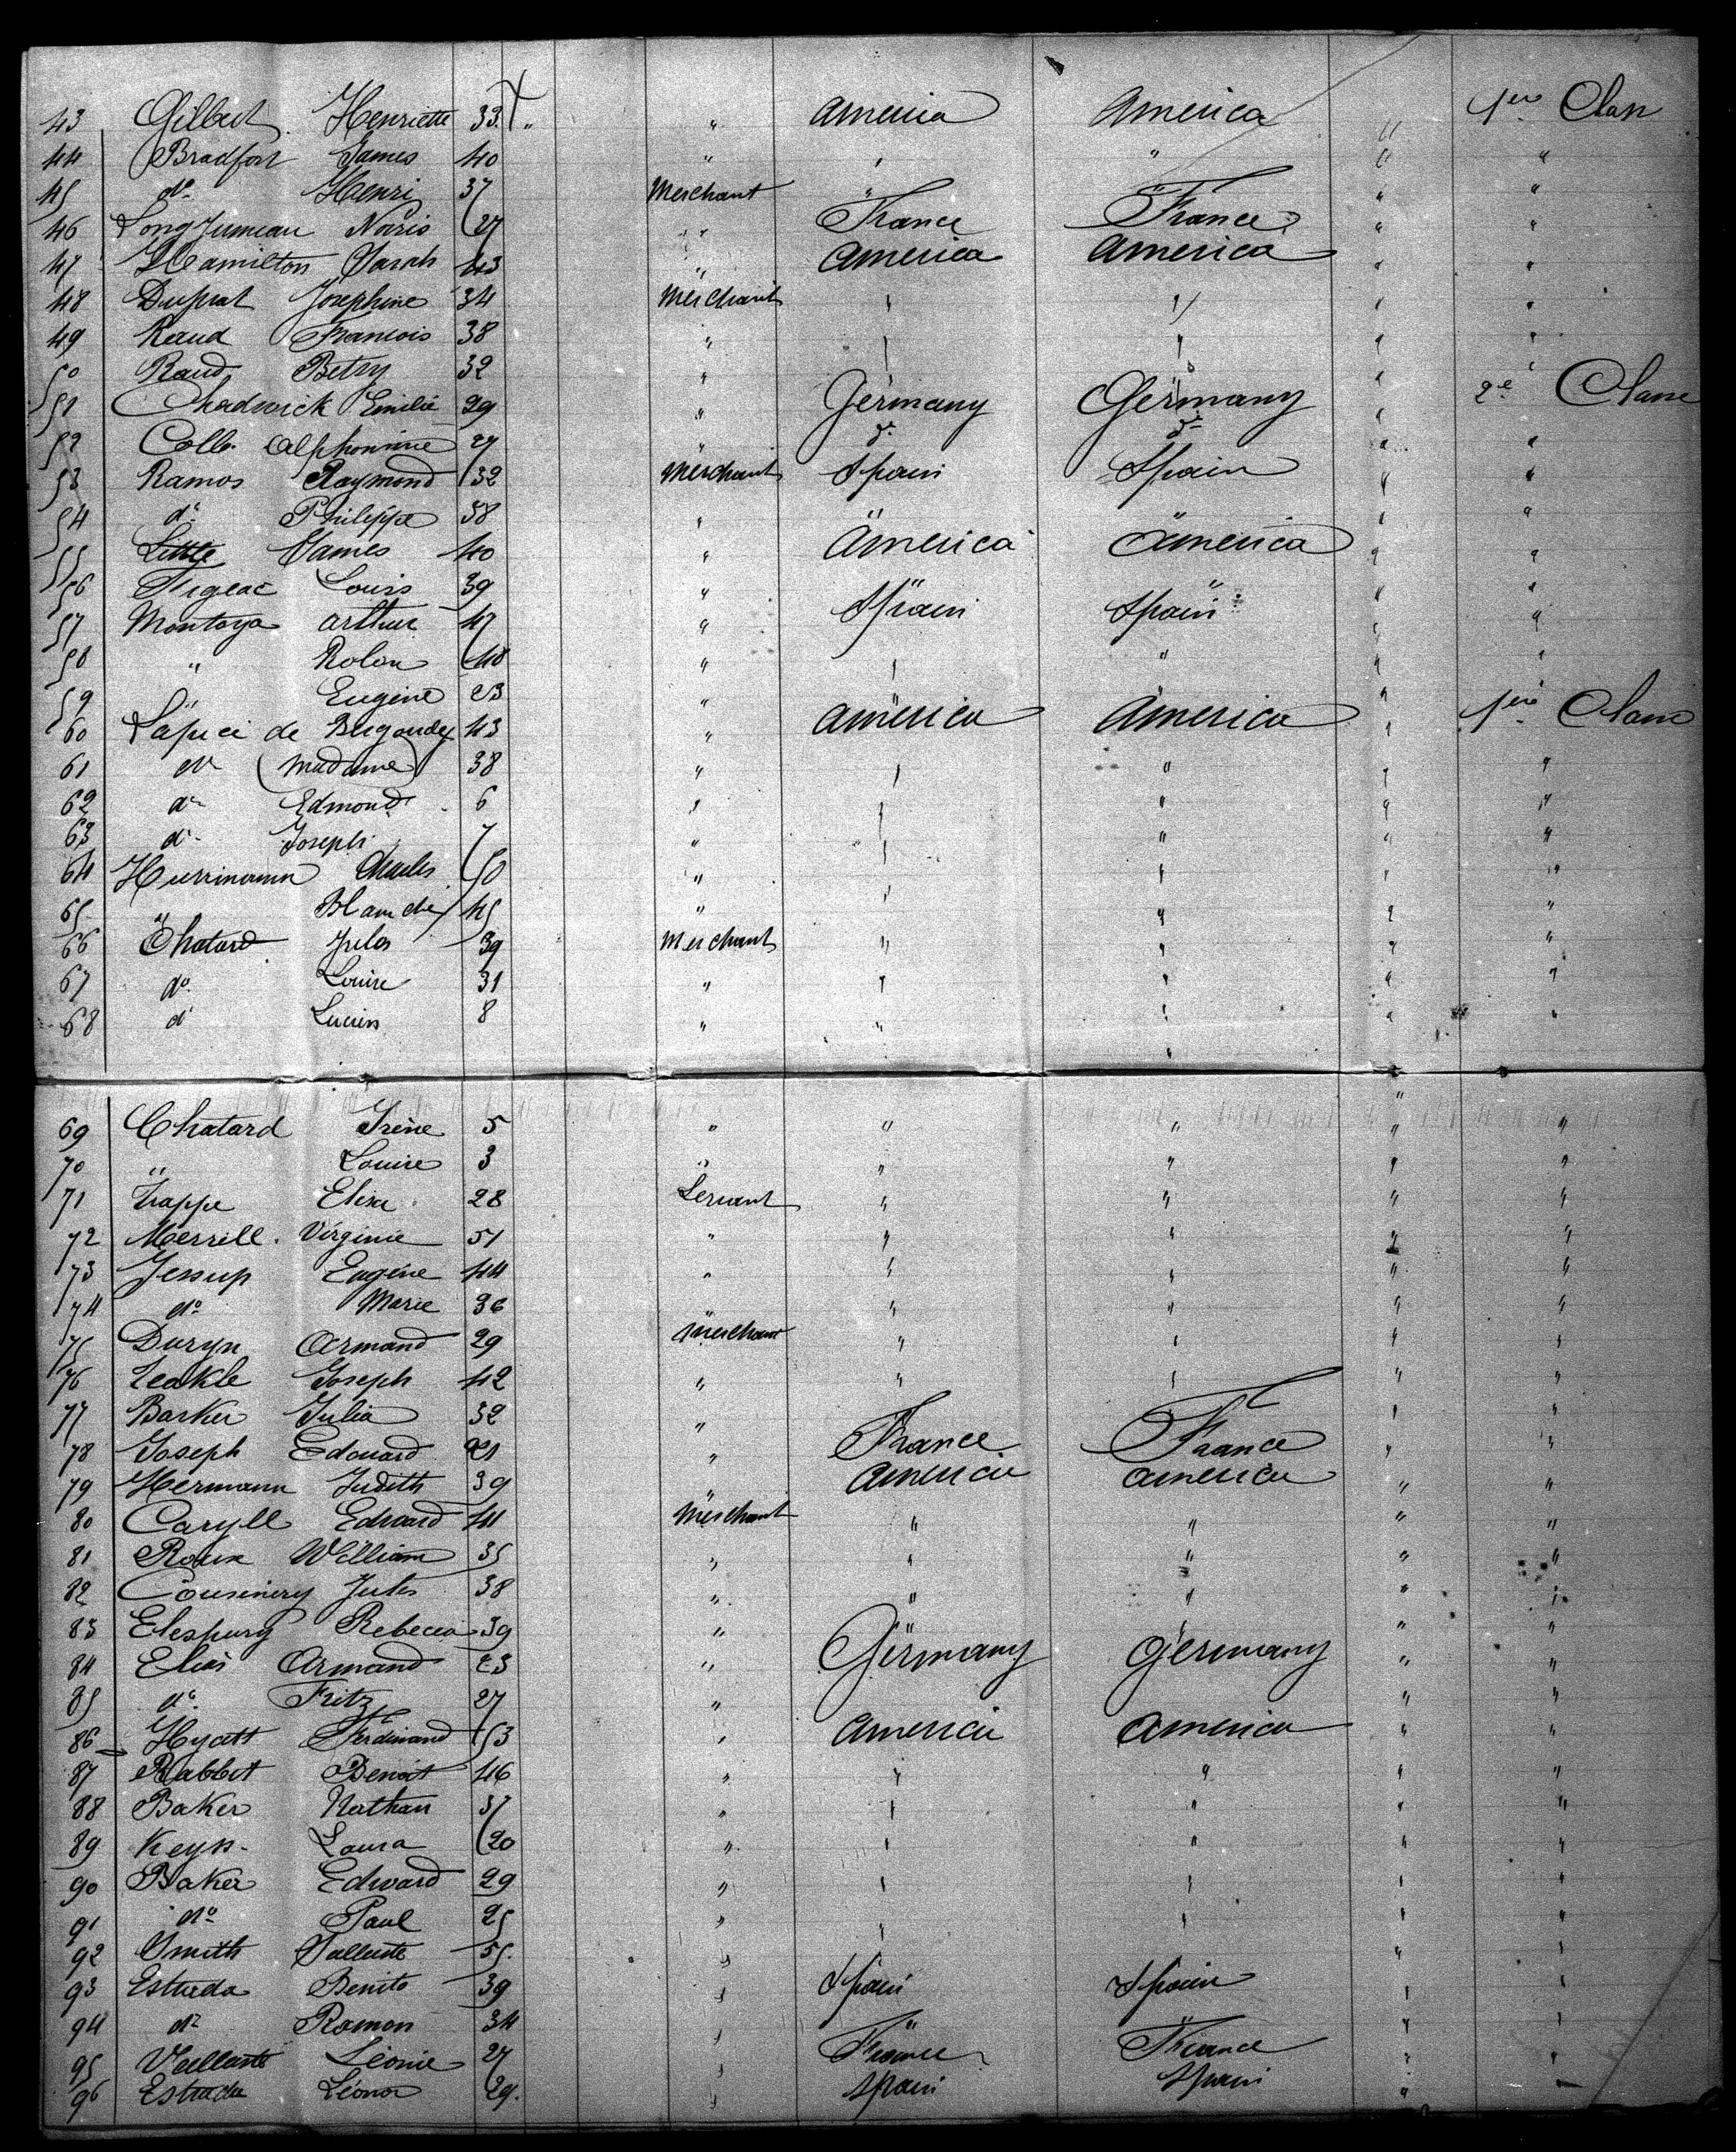 43 Gilbert Henriette 33 " " America America " 1ere Class
44 Bradfort James 40 " " " " "
45 do Henri 37 Merchant " " " "
46 Long Jumeau Noris 27 " France France " "
47 Hamilton Sarah 43 " America America " "
48 Duprat Josephine 34 Merchant " " " "
49 Raud Francois 38 " " " " "
50 Raud Betsy 32 " " " " "
51 Chadwick Emilie 29 " Germany Germany " 2e Classe
52 Collo Alphonsine 27 " do do " "
53 Ramos Raymond 32 Merchant Spain Spain " "
54 do Philippe 38 " " " " "
55 Little James 40 " America America " "
56 Figeac Louis 39 " " " " "
57 Montoya Arthur 47 " Spain Spain " "
58 " Rolon 48 " " " " "
59 " Eugene 23 " " " "
60 Lapice de Bergondy 43 " America America " 1ere Classe
61 do (Madame) 38 " " " " "
62 do Edmond 6 " " " " "
63 do Joseph 7 " " " " "
64 Herrimann Charles 50 " " " " "
65 " Blanche 45 " " " " "
66 Chatard Jules 39 Merchant " " " "
67 do Louise 31 " " " " "
68 do Lucien 8 " " " " "
69 Chatard Irène 5 " " " " "
70 " Louise 3 " " " " "
71 Trappe Elisa 28 Servant " " " "
72 Merrill Virginie 51 " " " " "
73 Jessup Eugène 44 " " " " "
74 do Marie 36 " " " " "
75 Duryn Armand 29 Merchant " " " "
76 Teakle Joseph 42 " " " " "
77 Barker Julia 32 " " " " "
78 Joseph Edouard 21 " France France " "
79 Hermann Judith 39 " America America " "
80 Caryll Edward 41 Merchant " " " "
81 Roux William 35 " " " " "
82 Cousinery Jules 38 " " " " "
83 Elespurg Rebecca 39 " " " " "
84 Elias Armand 23 " Germany Germany " "
85 do Fritz 27 " " " " "
86 Hyatt Ferdinand 53 " America America " "
87 Rabbit Benoit 46 " " " " "
88 Baker Nathan 37 " " " " "
89 Keyss Laura 20 " " " " "
90 Baker Edward 29 " " " " "
91 do Paul 25 " " " " "
92 Smith Salluste 55 " " " " "
93 Estrada Benito 39 " Spain Spain " "
94 do Ramon 34 " " " " "
95 Vaillante Léonie 27 " France France " "
96 Estrada Léonor 29 " Spain Spain " "